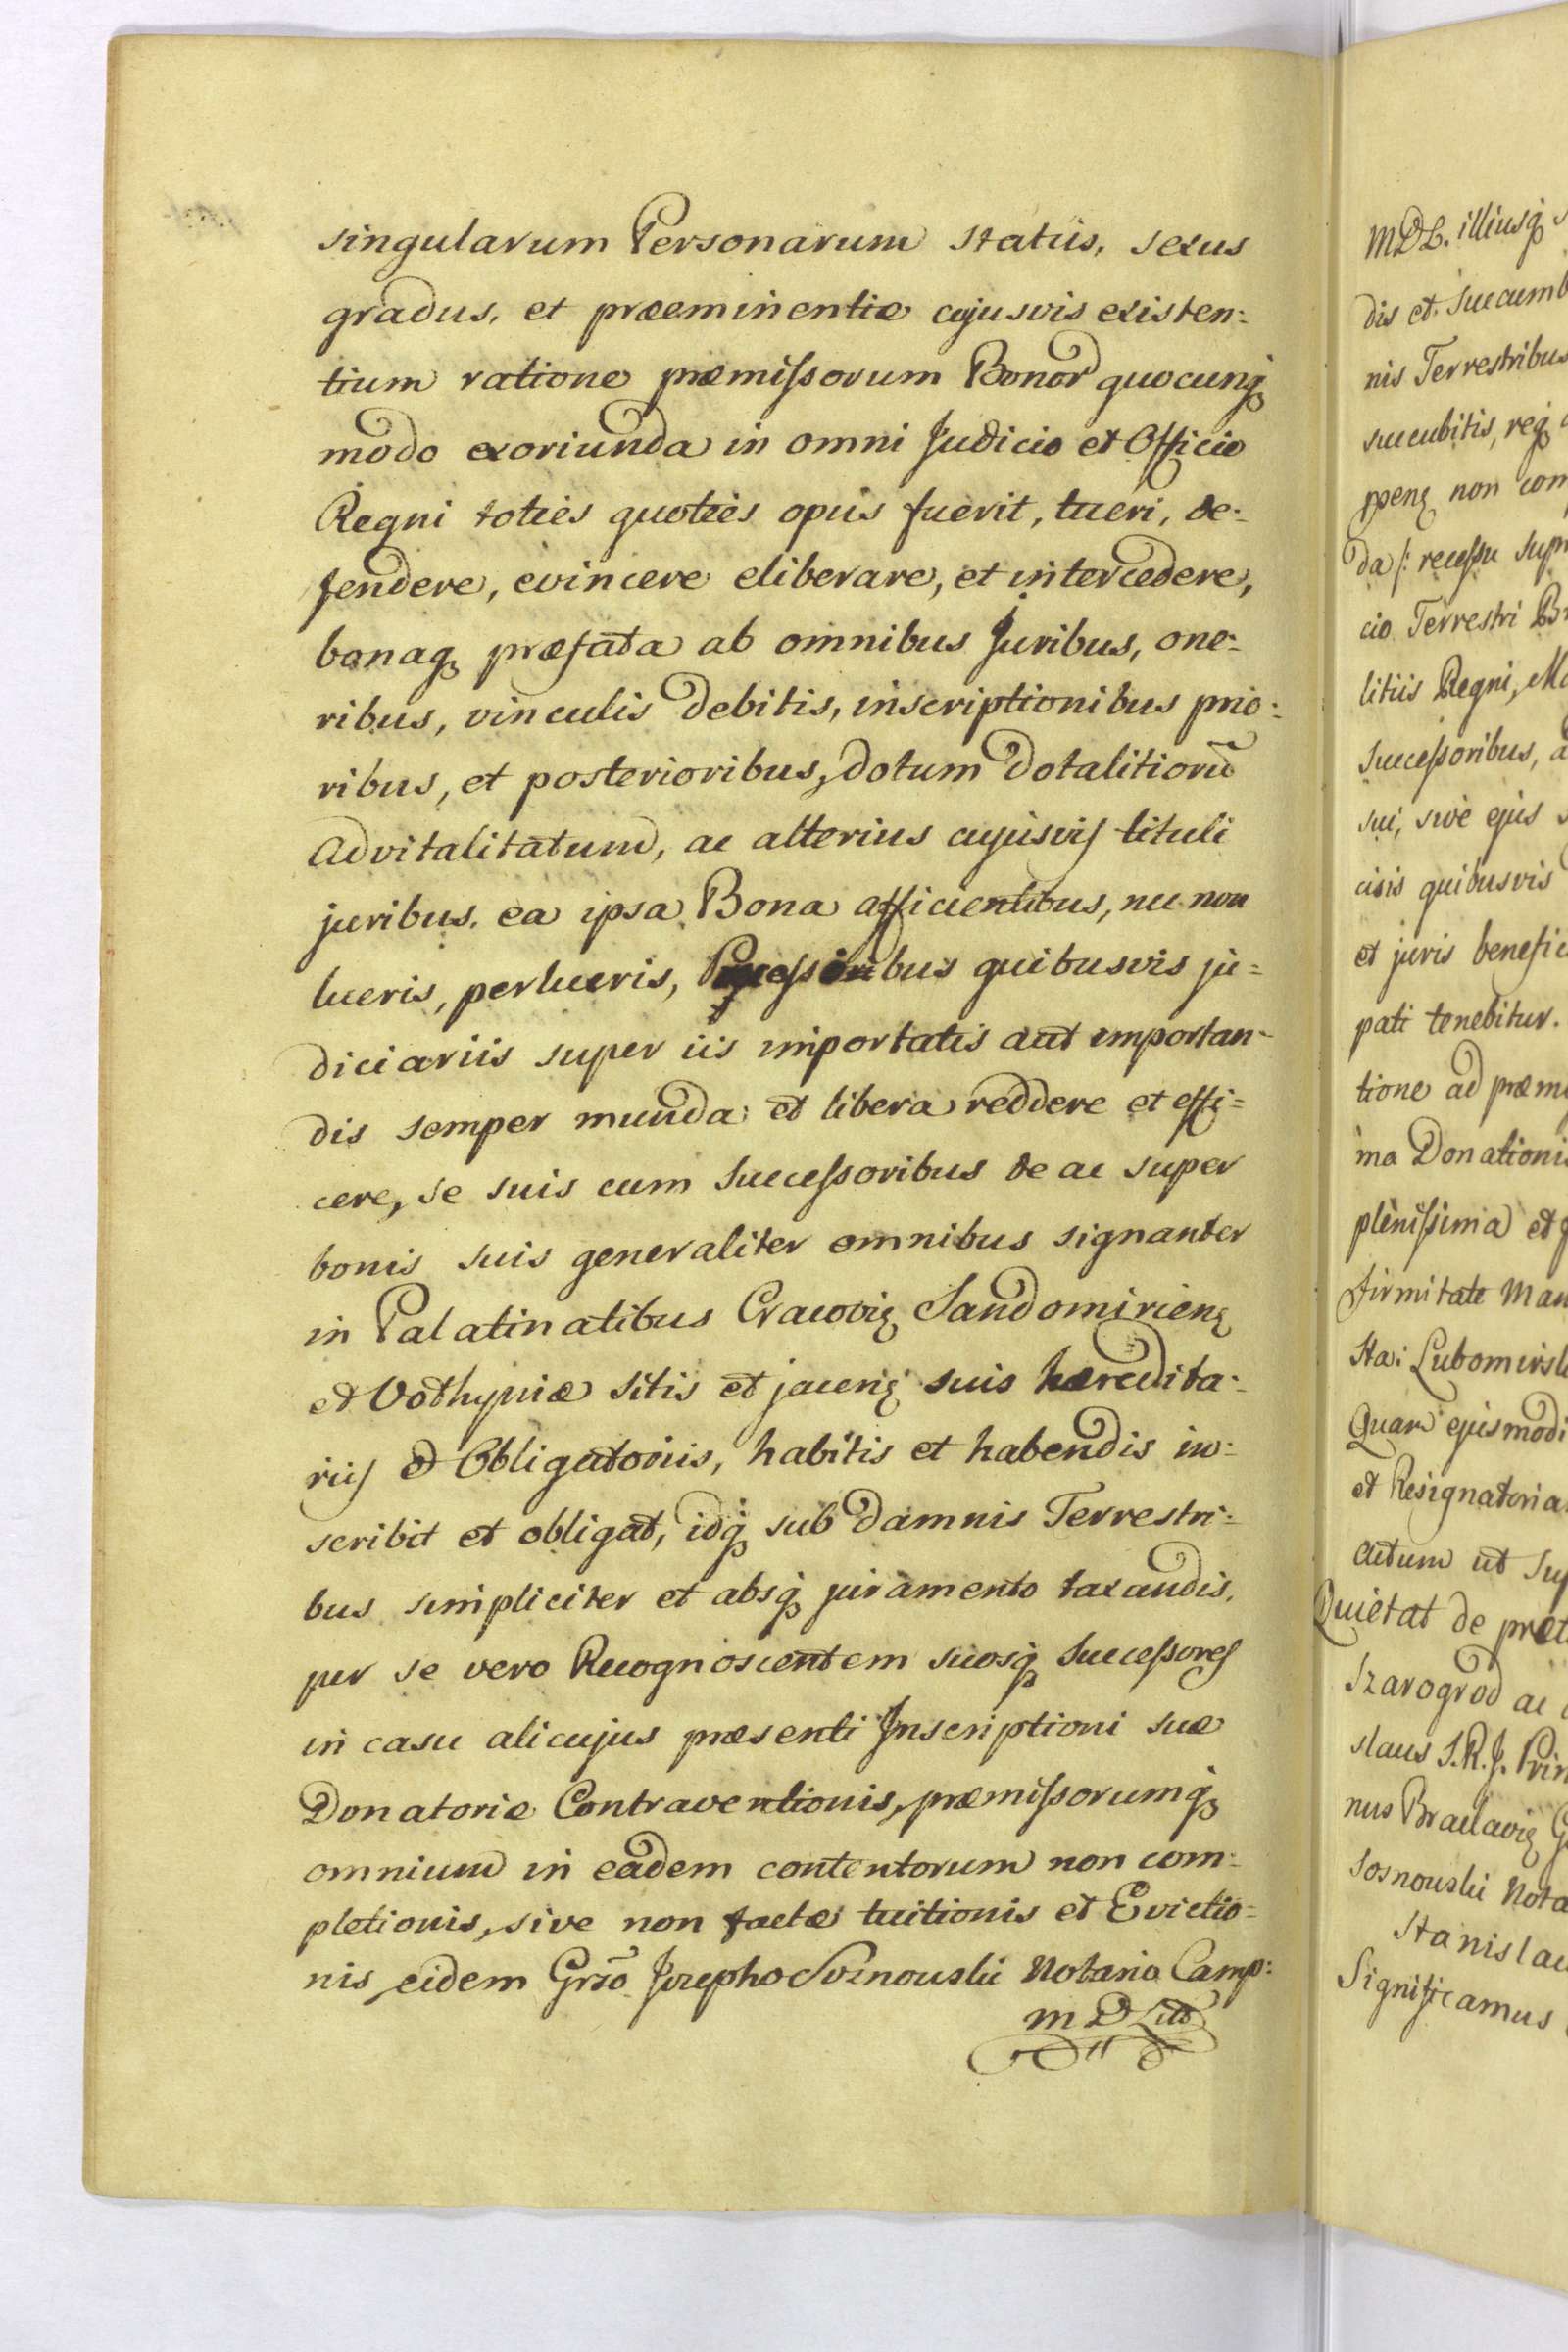 singularum Personarum status, sexus
gradus, et præeminentiæ cujusvis existen:
tium ratione præmissorum Bonor quocunq
modo exoriunda in omni Judicio et Officio
Regni toties quoties opus fuerit, tueri, de:
fendere, evincere eliberare, et intercedere,
bonaq præfata ab omnibus Juribus, one:
ribus, vinculis debitis, inscriptionibus prio:
ribus, et posterioribus, dotum dotalitiorū
advitalitatum, ac alterius cujusvis tituli
juribus, ea ipsa Bona afficientibus, nec non
lucris, perlucris, Processibus quibusvis ju=
diciariis super iis importatis aut importan-
dis semper munda et libera reddere et effi=
cere, se suis cum Successoribus de ac super
bonis suis generaliter omnibus signanter
in Palatinatibus Cracovię Sandomirienę
et Volhyniæ sitis et jacenę suis hæredita:
riis et Obligatoriis, habitis et habendis in:
scribit et obligat, idq sub damnis Terrestri:
bus simpliciter et absq juramento taxandis,
per se vero Recognoscentem suosq Successores
in casu alicujus præsenti Inscriptioni suæ
Donatoriæ Contraventionis, præmissorumq
omnium in eadem contentorum non com:
pletionis, sive non factæ tuitionis et Evictio=
nis, eidem Grso Josepho Sosnouski Notario Camp:
M D Litt
MDL. illiusq
dis et succumb
nis Terrestribus
succubitis, req
ppenę non com
da /: recessu supr
cio Terrestri Br
litiis Regni, Ma
Successoribus, a
sui, sive ejus
cisis quibusvis
et juris benefic
pati tenebitur.
tione ad præmi
ma Donationis
plenissima et
firmitate man
Sta: Lubomirsk
Quam ejusmodi
et Resignatoria
Actum ut sup
Quietat de præt
Szarogrod ac
slaus S.R.J. Prin
nus Braclavię G
Sosnouski Nota
Stanislau
Significamus